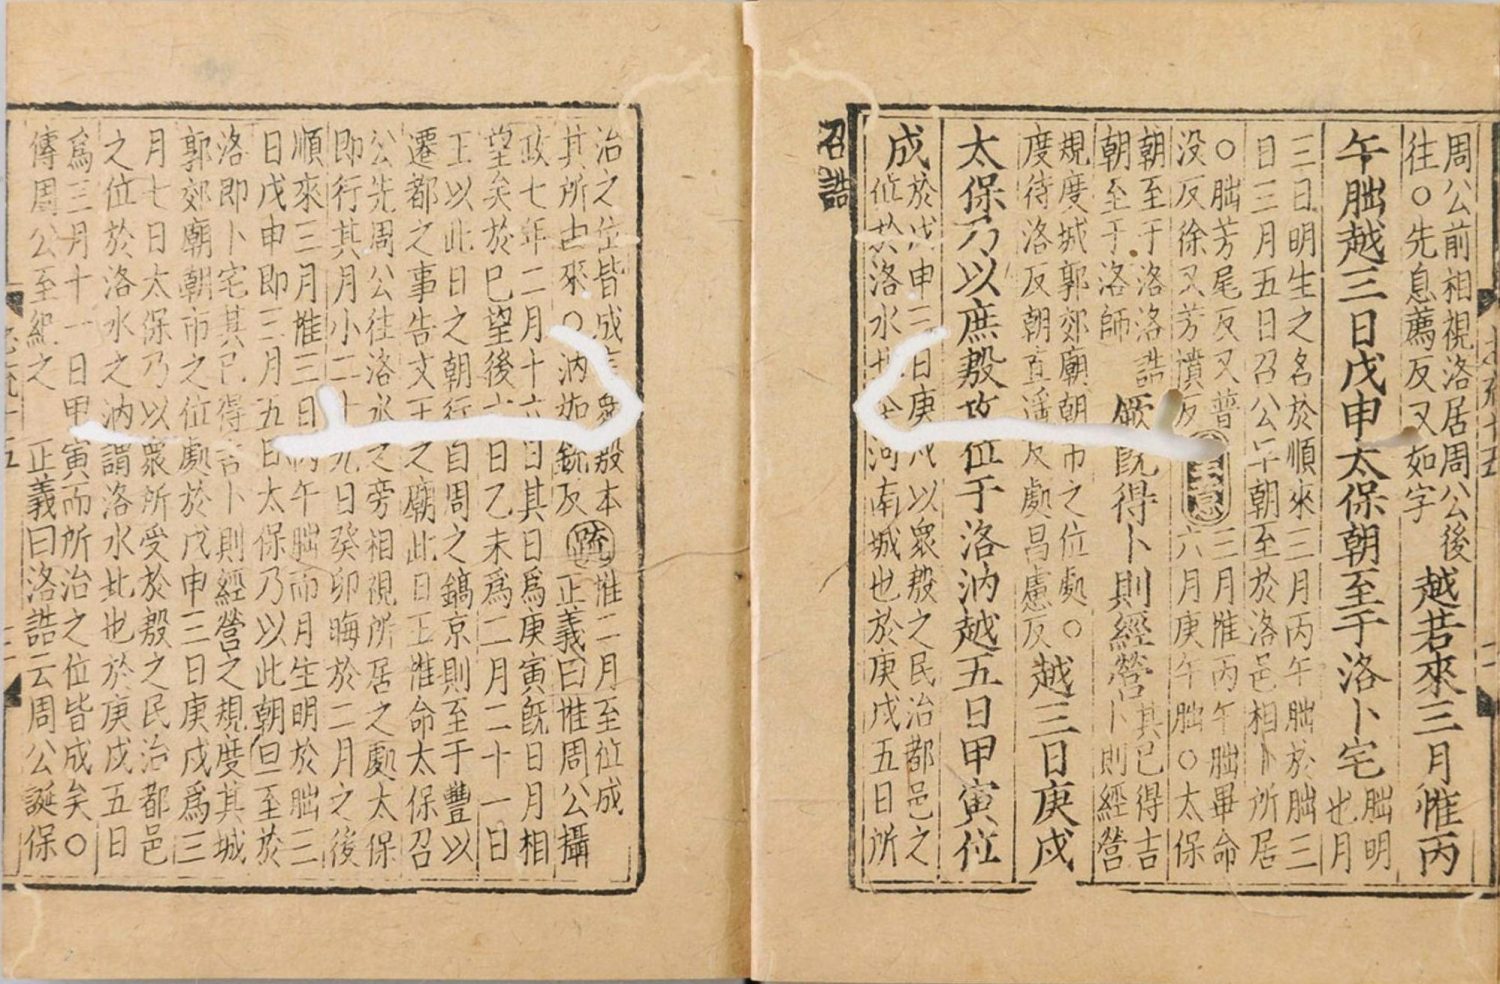 周公前相視洛居周公後
往○先息薦反又如字
越若來三月惟丙
午朏越三日戊申太保朝至于洛卜宅
朏明
也月
三日明生之名於順來三月丙午朏於朏三
日三月五日召公早朝至於洛邑相卜所居
○朏芳尾反又普
没反徐又芳憒反
三月惟丙午朏畢命
六月庚午朏○太保
朝至于洛洛誥
朝至于洛師
厥旣得卜則經營
其已得吉
卜則經營
規度城郭郊廟朝市之位處○
度待洛反朝直遥反處昌慮反
越三日庚戌
太保乃以庶殷攻位于洛汭越五日甲寅位
成
於戊申三日庚戌以衆殷之民治都邑之
位於洛水北今河南城也於庚戌五日所
召誥
治之位皆成言衆殷本
其所由來○汭如銳反
疏
惟二月至位成
正義曰惟周公攝
政七年二月十六日其日爲庚寅旣日月相
望矣於巳望後六日乙未爲二月二十一日
王以此日之朝行自周之鎬京則至于豐以
遷都之事告文王之廟此日王惟命太保召
公先周公往洛水之旁相視所居之處太保
即行其月小二十九日癸卯晦於二月之後
順來三月惟三日丙午朏而月生明於朏三
日戊申即三月五日太保乃以此朝旦至於
洛即卜宅其巳得吉卜則經營之規度其城
郭郊廟朝市之位處於戊申三日庚戌爲三
月七日太保乃以衆所受於殷之民治都邑
之位於洛水之汭謂洛水北也於庚戌五日
爲三月十一日甲寅而所治之位皆成矣○
傳周公至紀之 正義曰洛誥云周公誕保